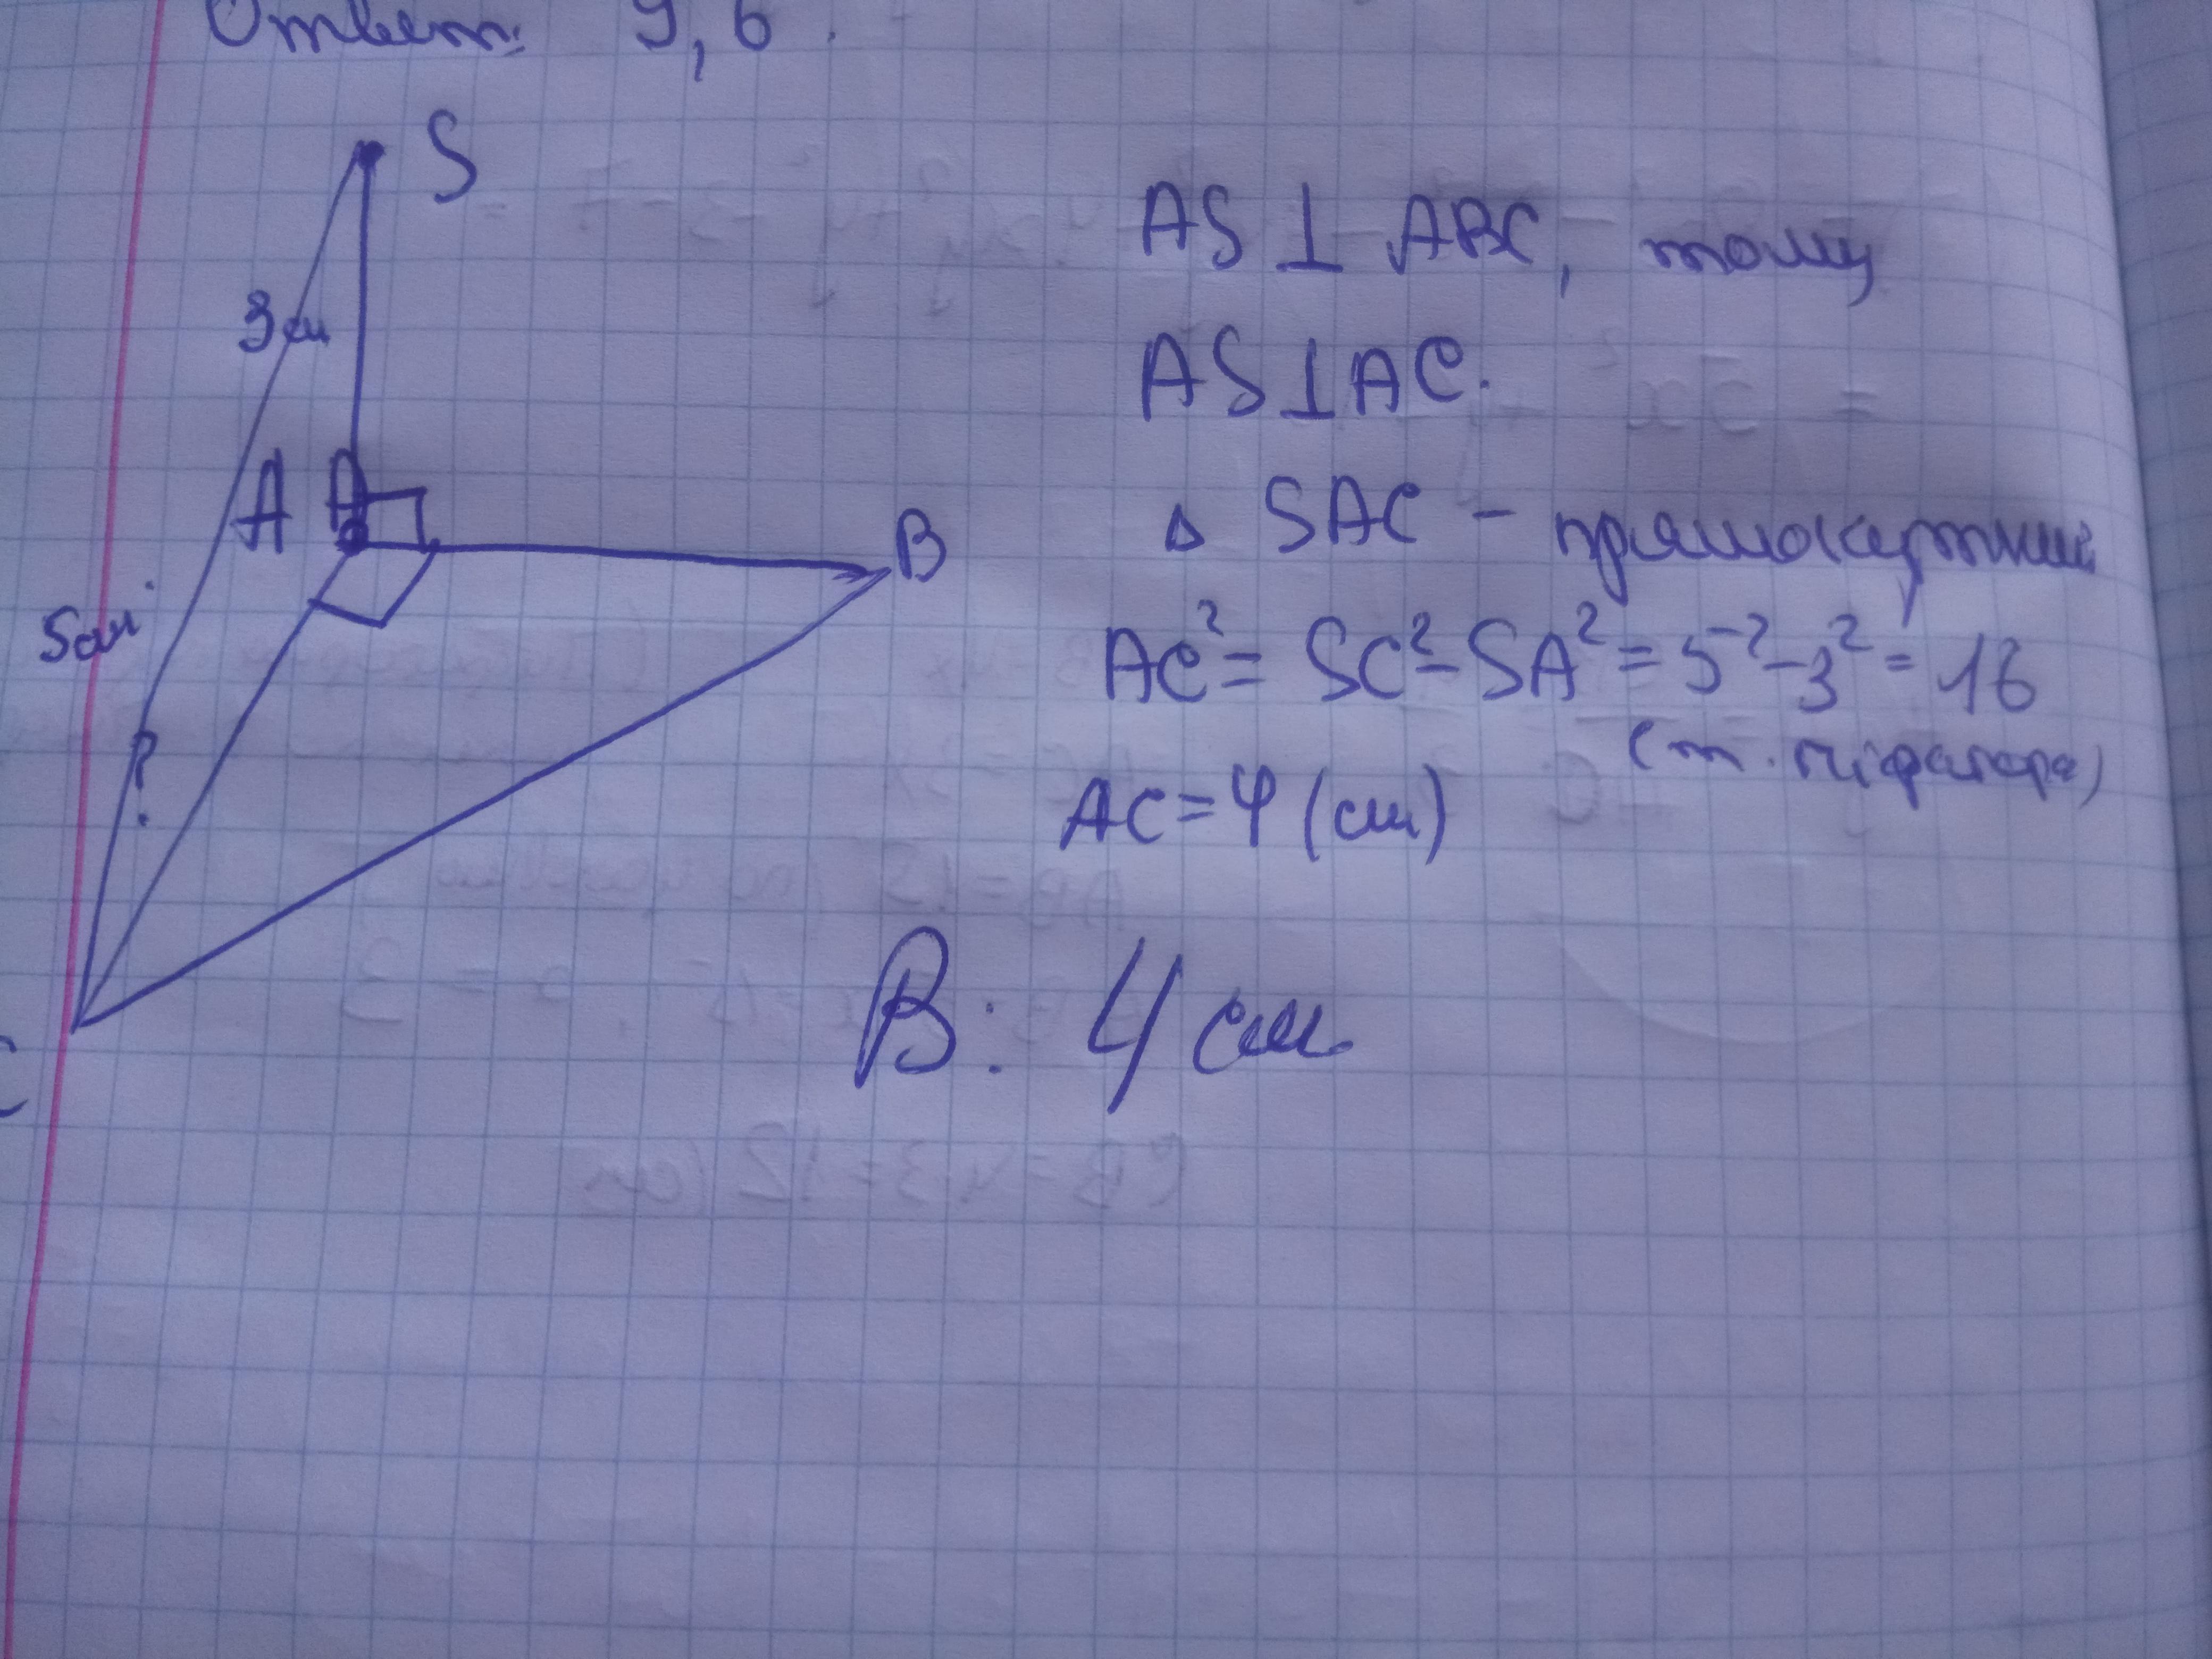 Ответ: 9,6.
S
3 см
A A
B
5 см
?
C
AS ⊥ ABC, тому
AS ⊥ AC.
Δ SAC - прямокутний
AC² = SC² - SA² = 5² - 3² = 16
(т. Піфагора)
AC = 4 (см)
В: 4 см